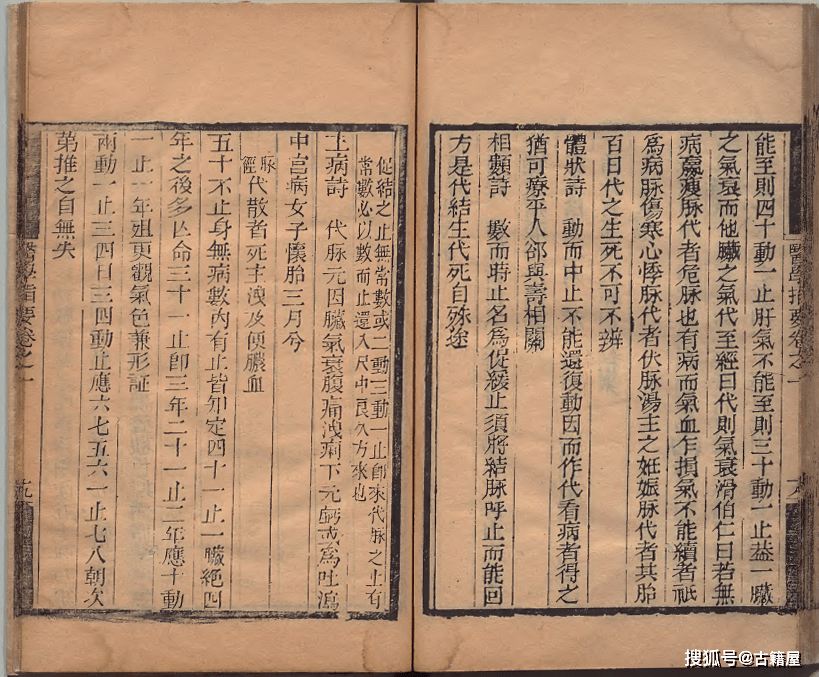 能至則四十動一止肝氣不能至則三十動一止益一臟
之氣衰而他臟之氣代至經曰代則氣衰滑伯仁曰若無
病羸瘦脉代者危脉也有病而氣血乍損氣不能續者祇
爲病脉傷寒心悸脉代者伏脉湯主之姙娠脉代者其胎
百日代之生死不可不辨
體狀詩 動而中止不能還復動因而作代看病者得之
猶可療平人卻與壽相關
相類詩 數而時止名爲促緩止須將結脉呼止而能回
方是代結生代死自殊途
醫學指要卷之一 十八
促結之止無常數或二動三動一止卽來代脉之止有
常數必以數而止還入尺中良久方來也
主病詩 代脉元因臟氣衰腹痛洩痢下元虧或爲吐瀉
中宮病女子懷胎三月兮
脉經代散者死主洩及便膿血
五十不止身無病數內有止皆知定四十一止一臟絕四
年之後多亾命三十一止卽三年二十一止二年應十動
一止一年殂更觀氣色兼形証
兩動一止三四日三四動止應六七五六一止七八朝次
第推之自無失
醫學指要卷之一 十九
搜狐号@古籍屋